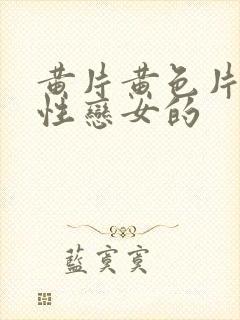 黃片黃色片
性戀女的
藍寞寞